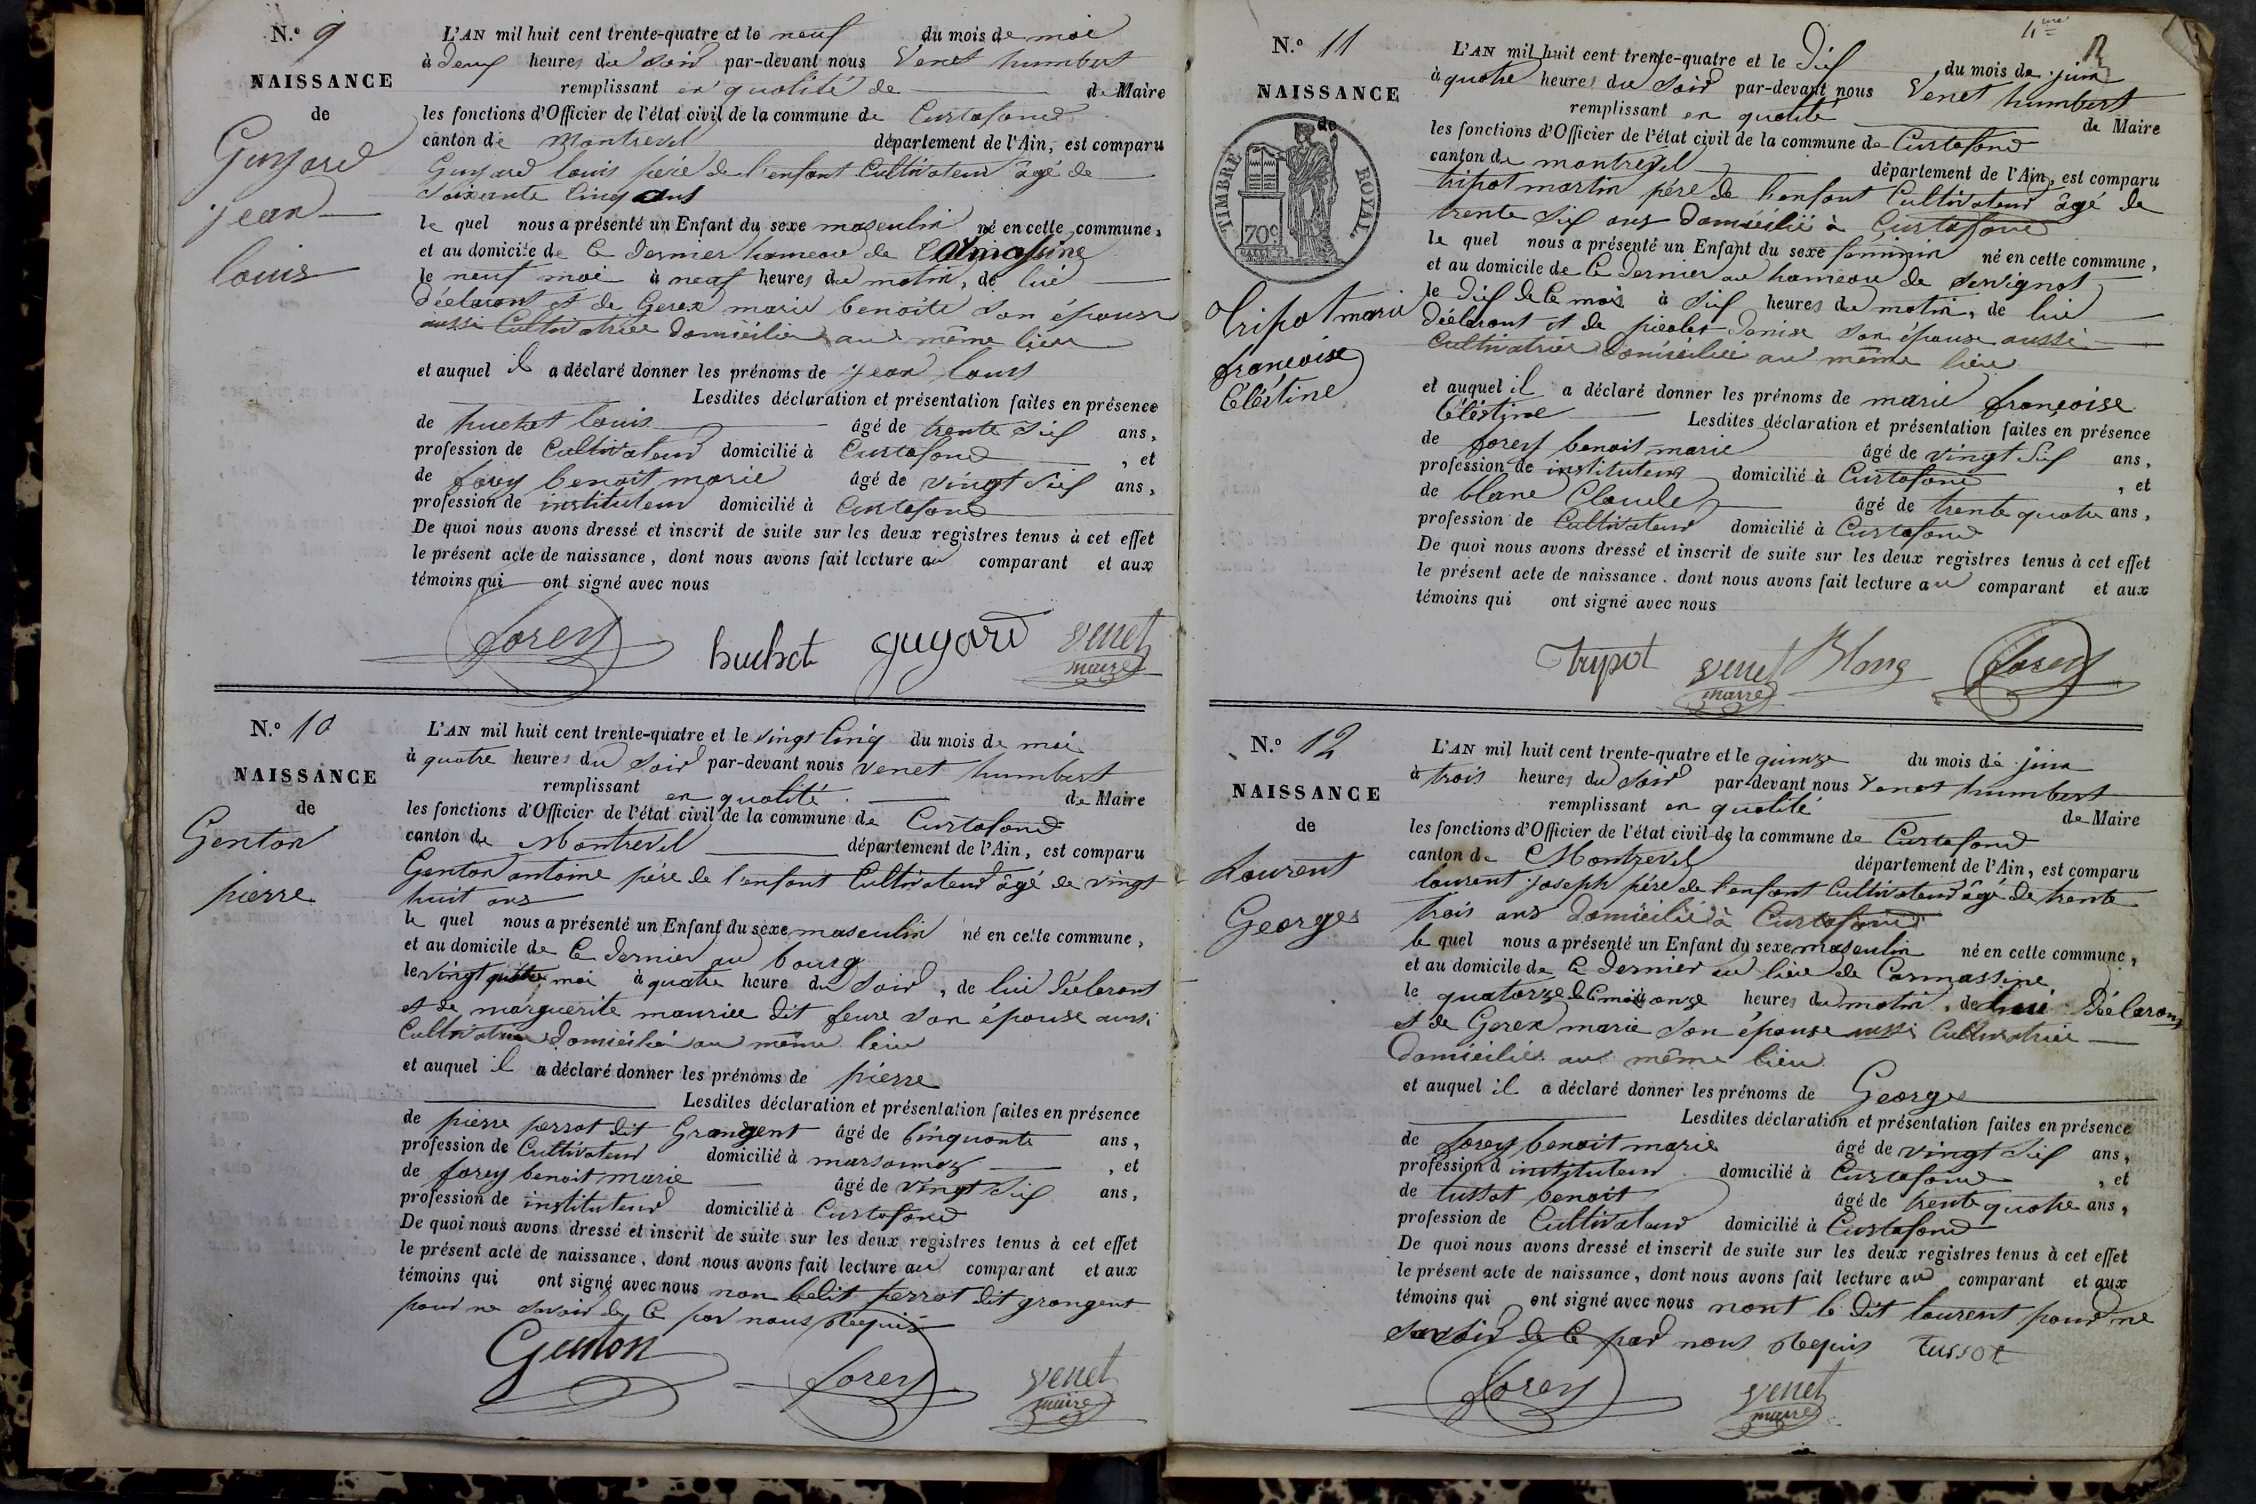 N.º 9
NAISSANCE
de
Guyard
jean
louis
L'AN mil huit cent trente-quatre et le neuf du mois de mai
à deux heures du soir par-devant nous Venet humbert
remplissant en qualité de de Maire
les fonctions d'Officier de l'état civil de la commune de Curtafond
canton de Montrevel département de l'Ain, est comparu
Guyard louis père de l'enfant Cultivateur âgé de
soixante Cinq ans
le quel nous a présenté un Enfant du sexe masculin né en cette commune,
et au domicile de Ce dernier hameau de
le neuf mai à neuf heures du matin, de lui
déclarant et de Gerex marie benoite son épouse
aussi Cultivatrice domiciliés au même lieu
et auquel il a déclaré donner les prénoms de jean louis
Lesdites déclaration et présentation faites en présence
de huchet louis âgé de trente six ans,
profession de Cultivateur domicilié à Curtafond , et
de forey benoit marie âgé de vingt six ans,
profession de instituteur domicilié à Curtafond
De quoi nous avons dressé et inscrit de suite sur les deux registres tenus à cet effet
le présent acte de naissance, dont nous avons fait lecture au comparant et aux
témoins qui ont signé avec nous
forey huchet guyard venet
maire
N.º 10
NAISSANCE
de
Genton
pierre
L'AN mil huit cent trente-quatre et le vingt Cinq du mois de mai
à quatre heures du soir par-devant nous venet humbert
remplissant en qualité de Maire
les fonctions d'Officier de l'état civil de la commune de Curtafond
canton de Montrevel département de l'Ain, est comparu
Genton antoine père de l'enfant Cultivateur âgé de vingt
huit ans
le quel nous a présenté un Enfant du sexe masculin né en cette commune,
et au domicile de Ce dernier au bourg
le vingt quatre mai à quatre heure du soir, de lui déclarant
et de marguerite maurice dit feure son épouse aussi
Cultivatrice domiciliés au même lieu
et auquel il a déclaré donner les prénoms de pierre
Lesdites déclaration et présentation faites en présence
de pierre perrot dit Grangent âgé de Cinquante ans,
profession de Cultivateur domicilié à marsonnaz , et
de forey benoit marie âgé de vingt six ans,
profession de instituteur domicilié à Curtafond
De quoi nous avons dressé et inscrit de suite sur les deux registres tenus à cet effet
le présent acte de naissance, dont nous avons fait lecture au comparant et aux
témoins qui ont signé avec nous non ledit perrot dit grangent
pour ne savoir de Ce par nous Requis
Genton forey venet
maire
N.º 11
NAISSANCE
de
TIMBRE ROYAL.
70c
Tripot marie
françoise
Céléstine
L'AN mil huit cent trente-quatre et le dix du mois de juin
à quatre heures du soir par-devant nous Venet humbert
remplissant en qualité de Maire
les fonctions d'Officier de l'état civil de la commune de Curtafond
canton de montrevel département de l'Ain, est comparu
tripot martin père de l'enfant Cultivateur âgé de
trente six ans domicilié à Curtafond
le quel nous a présenté un Enfant du sexe féminin né en cette commune,
et au domicile de Ce dernier au hameau de servignat
le dix de Ce mois à six heures du matin, de lui
déclarant et de picolet denise son épouse aussi
Cultivatrice domiciliés au même lieu
et auquel il a déclaré donner les prénoms de marie françoise
Céléstine Lesdites déclaration et présentation faites en présence
de forey benoit marie âgé de vingt six ans,
profession de instituteur domicilié à Curtafond , et
de blanc Claude âgé de trente quatre ans,
profession de Cultivateur domicilié à Curtafond
De quoi nous avons dressé et inscrit de suite sur les deux registres tenus à cet effet
le présent acte de naissance, dont nous avons fait lecture au comparant et aux
témoins qui ont signé avec nous
tripot venet Blanc forey
maire
N.º 12
NAISSANCE
de
Laurent
Georges
L'AN mil huit cent trente-quatre et le quinze du mois de juin
à trois heures du soir par-devant nous Venet humbert
remplissant en qualité de Maire
les fonctions d'Officier de l'état civil de la commune de Curtafond
canton de Montrevel département de l'Ain, est comparu
laurent joseph père de l'enfant Cultivateur âgé de trente
trois ans domicilié à Curtafond
le quel nous a présenté un Enfant du sexe masculin né en cette commune,
et au domicile de Ce dernier au lieu de Carmassine
le quatorze de Ce mois à onze heures du matin, de lui déclarant
et de Gerex marie son épouse aussi Cultivatrice
domiciliés au même lieu
et auquel il a déclaré donner les prénoms de Georges
Lesdites déclaration et présentation faites en présence
de forey benoit marie âgé de vingt six ans,
profession d instituteur domicilié à Curtafond , et
de tussot benoit âgé de trente quatre ans,
profession de Cultivateur domicilié à Curtafond
De quoi nous avons dressé et inscrit de suite sur les deux registres tenus à cet effet
le présent acte de naissance, dont nous avons fait lecture au comparant et aux
témoins qui ont signé avec nous nont le dit laurent pour ne
savoir de Ce par nous Requis tussot
forey venet
maire